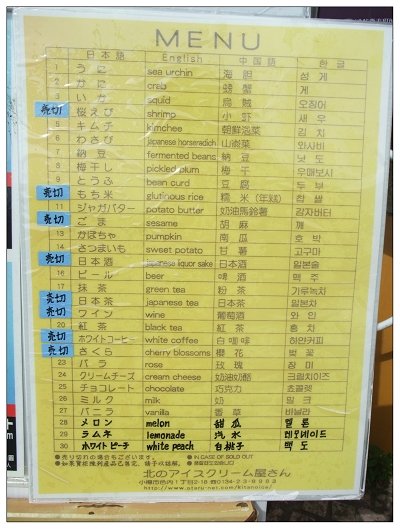 MENU
日本語 English 中国語 한글
1 うに sea urchin 海胆 성게
2 かに crab 螃蟹 게
3 いか squid 烏賊 오징어
売切 桜えび shrimp 小虾 새우
5 キムチ kimchee 朝鮮泡菜 김치
6 わさび japanese horseradich 山嵛菜 와사비
7 納豆 fermented beans 納豆 낫도
8 梅干し pickled plum 梅干 우메보시
9 とうふ bean curd 豆腐 두부
売切 もち米 glutinous rice 糯米(年糕) 찹쌀
11 ジャガバター potato butter 奶油馬鈴薯 감자버터
売切 ごま sesame 胡麻 깨
13 かぼちゃ pumpkin 南瓜 호박
14 さつまいも sweet potato 甘薯 고구마
売切 日本酒 japanese liquor sake 日本酒 일본술
16 ビール beer 啤酒 맥주
17 抹茶 green tea 粉茶 가루녹차
売切 日本茶 japanese tea 日本茶 일본차
売切 ワイン wine 葡萄酒 와인
20 紅茶 black tea 紅茶 홍차
売切 ホワイトコーヒー white coffee 白咖啡 하얀커피
売切 さくら cherry blossoms 櫻花 벚꽃
23 バラ rose 玫瑰 장미
24 クリームチーズ cream cheese 奶油奶酪 크림치즈
25 チョコレート chocolate 巧克力 쵸콜렛
26 ミルク milk 奶 밀크
27 バニラ vanilla 香草 바닐라
28 メロン melon 甜瓜 멜론
29 ラムネ lemonade 汽水 레모네이드
30 ホワイトピーチ white peach 白桃子 백도
●売り切れの場合もございます。 ●IN CASE OF SOLD OUT
北のアイスクリーム屋さん
小樽市色内1丁目2-18 ☎0134-23-8983
http://www.otaru-net.com/kitanoice/